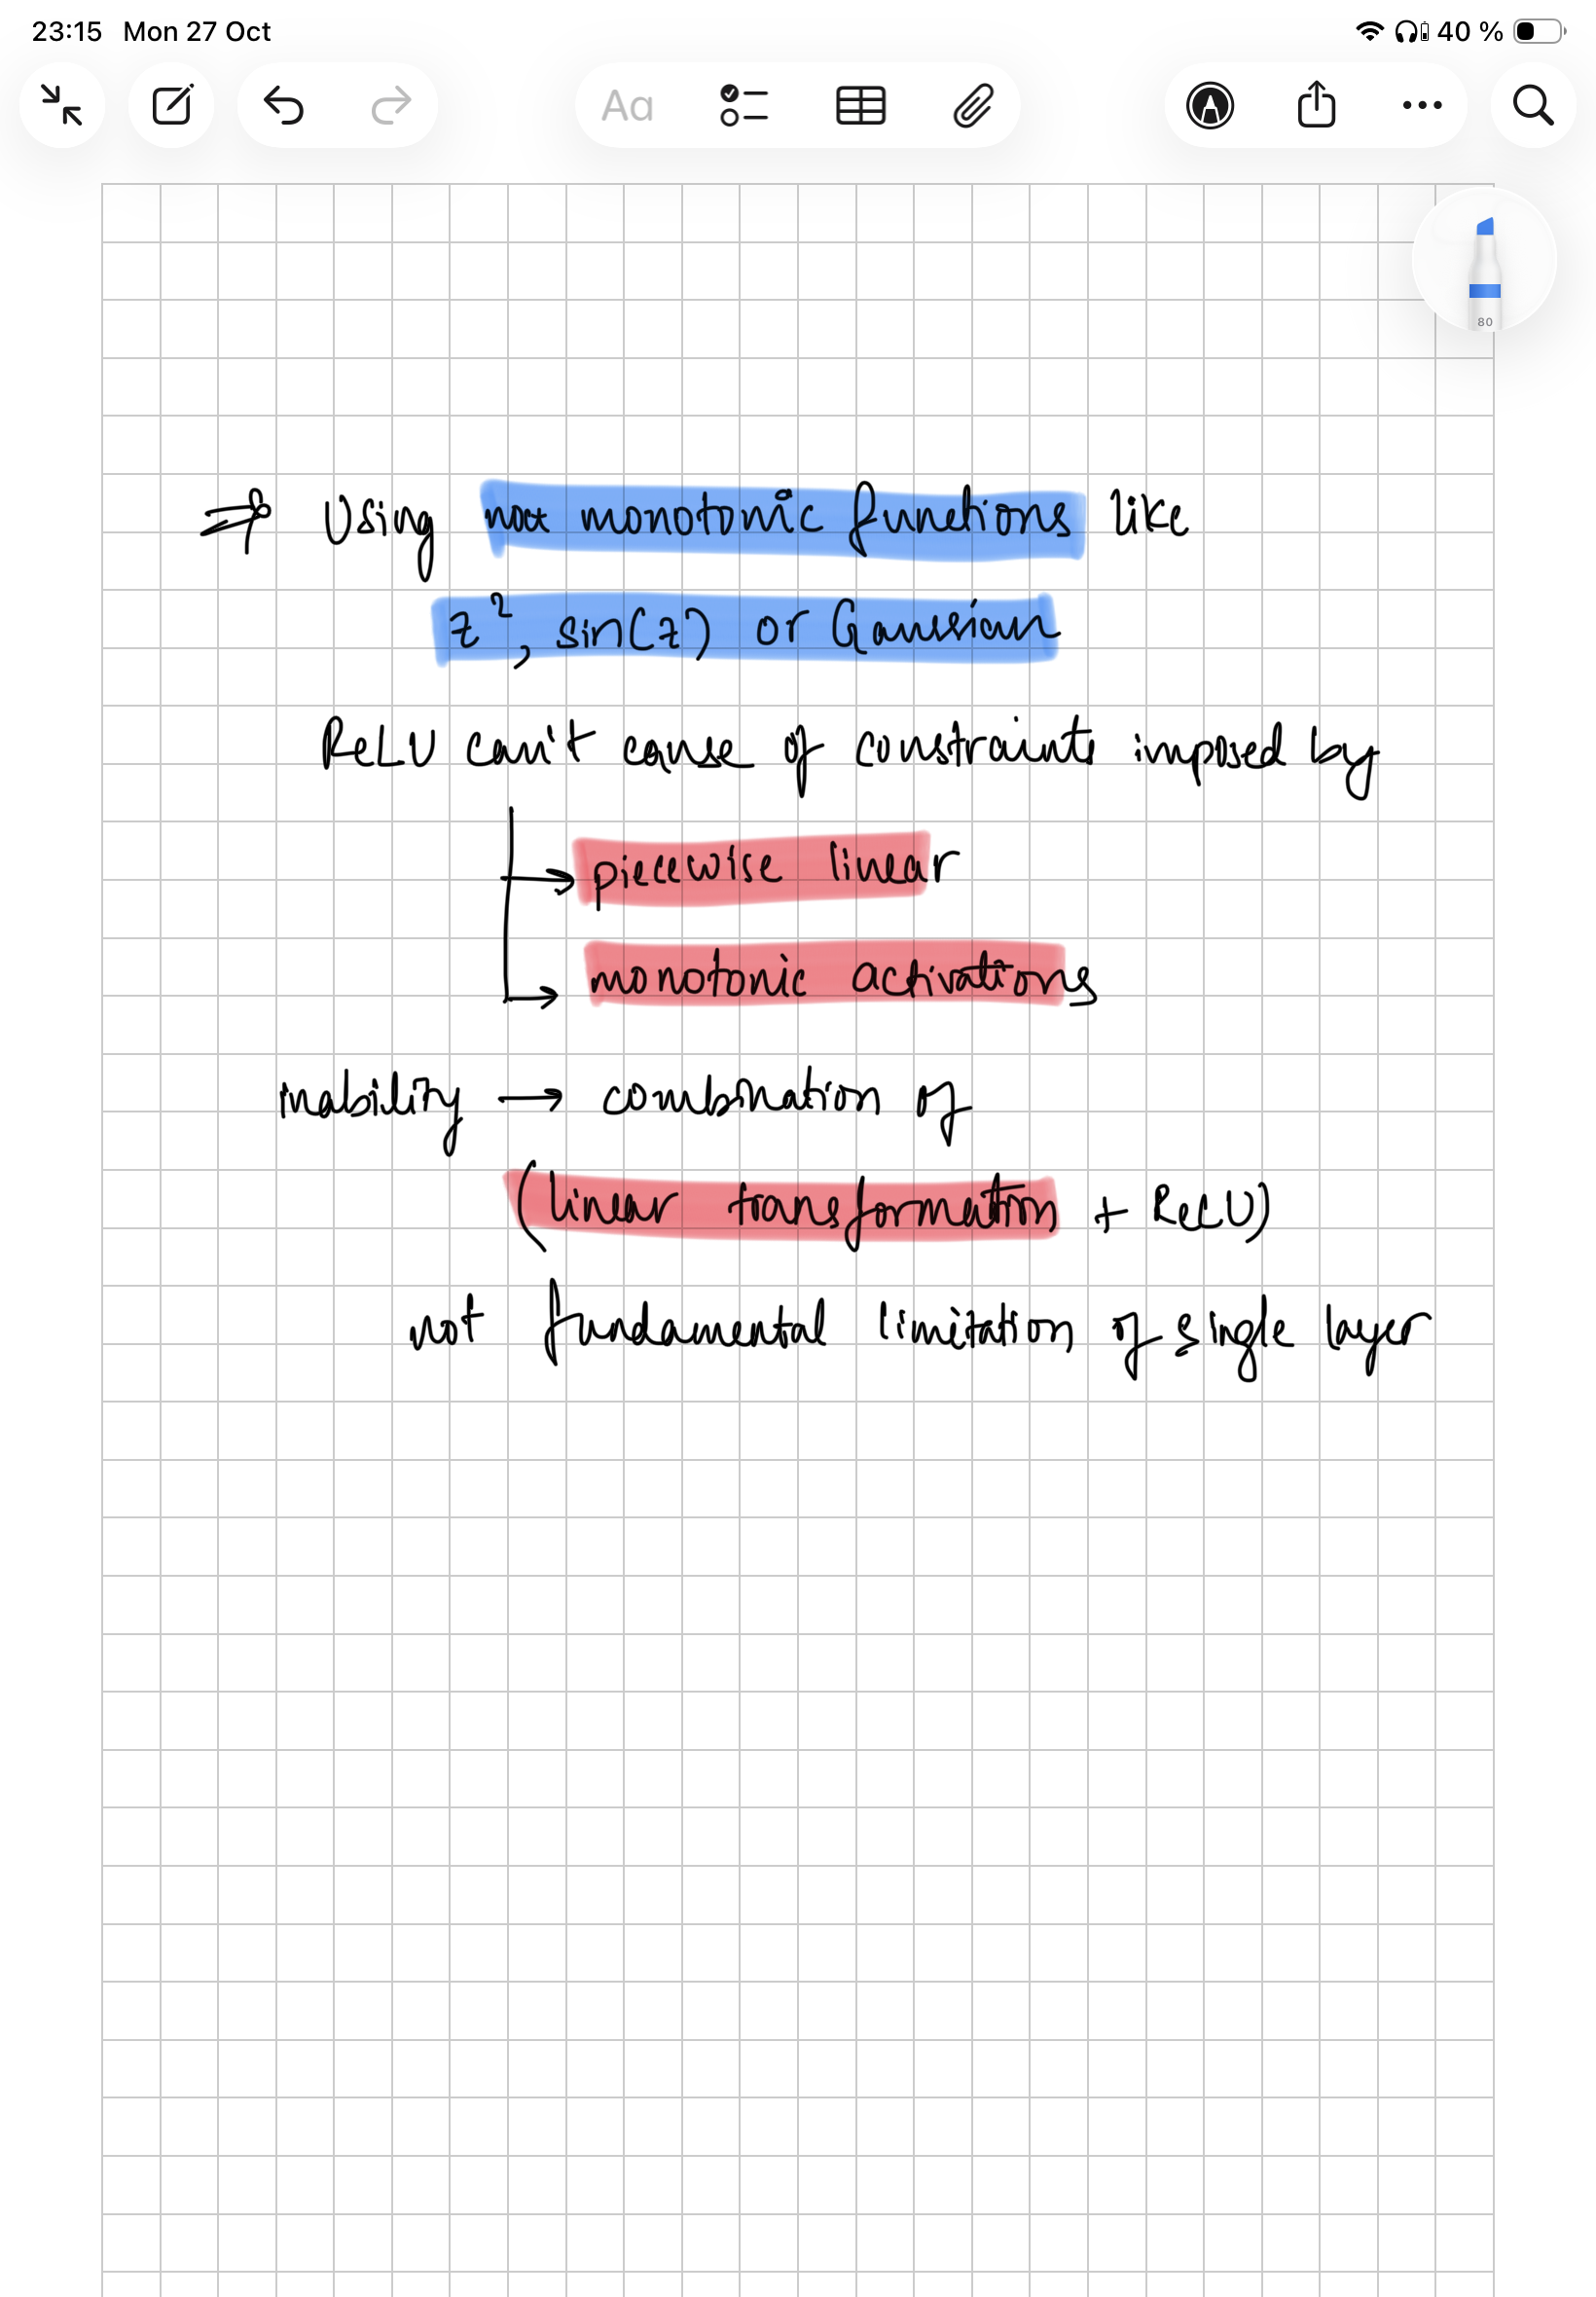 23:15 Mon 27 Oct 40 %
Aa
80
⇒ Using not monotonic functions like
z², sin(z) or Gaussian
ReLU can't cause of constraints imposed by
→ piecewise linear
→ monotonic activations
inability → combination of
(linear transformation + ReLU)
not fundamental limitation of single layer